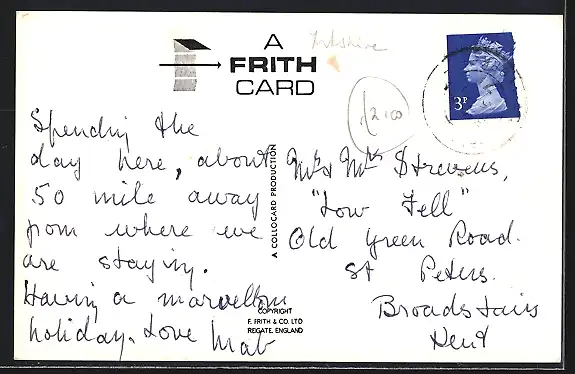 A
FRITH
CARD
£2.00
3P
Spending the
day here, about
50 mile away
from where we
are staying.
Having a marvellous
holiday. Love Mab
A COLLOCARD PRODUCTION
Mr & Mrs Stevens,
"Low Fell"
Old Green Road.
St Peters.
Broadstairs
Kent
COPYRIGHT
F. FRITH & CO. LTD
REIGATE, ENGLAND